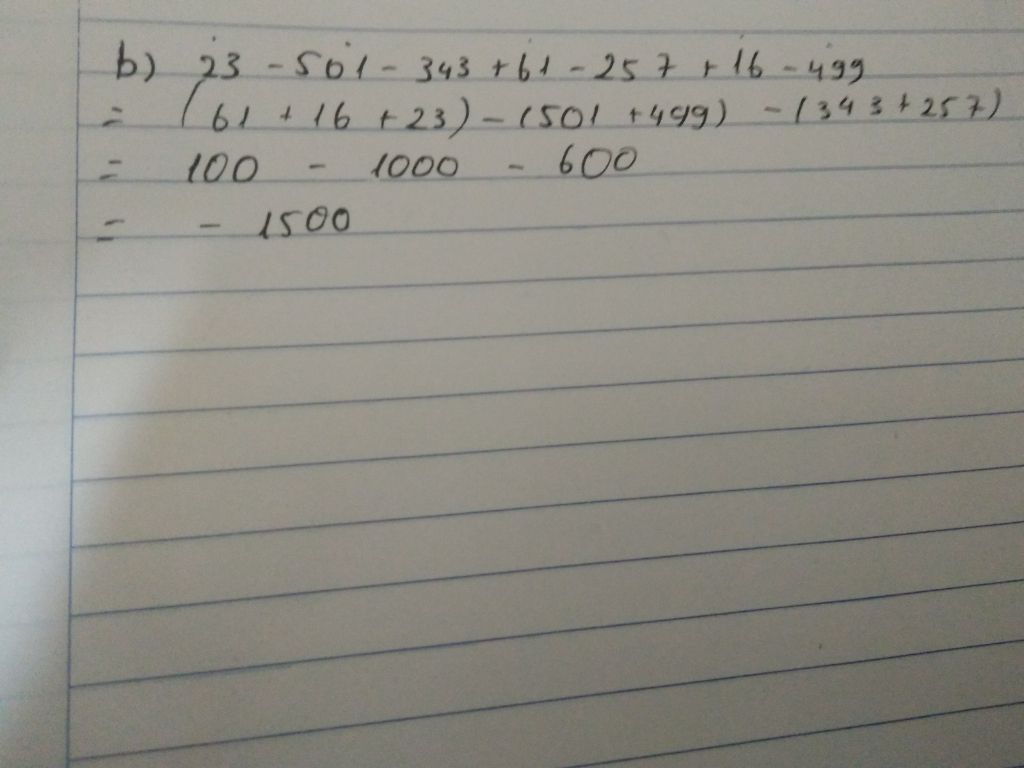 b) 23 - 501 - 343 + 61 - 257 + 16 - 499
= (61 + 16 + 23) - (501 + 499) - (343 + 257)
= 100 - 1000 - 600
= - 1500